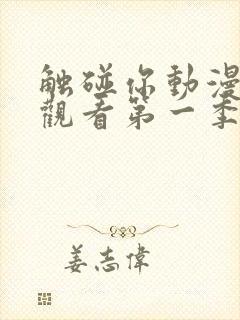 触碰你動漫
觀看第一季
姜志偉